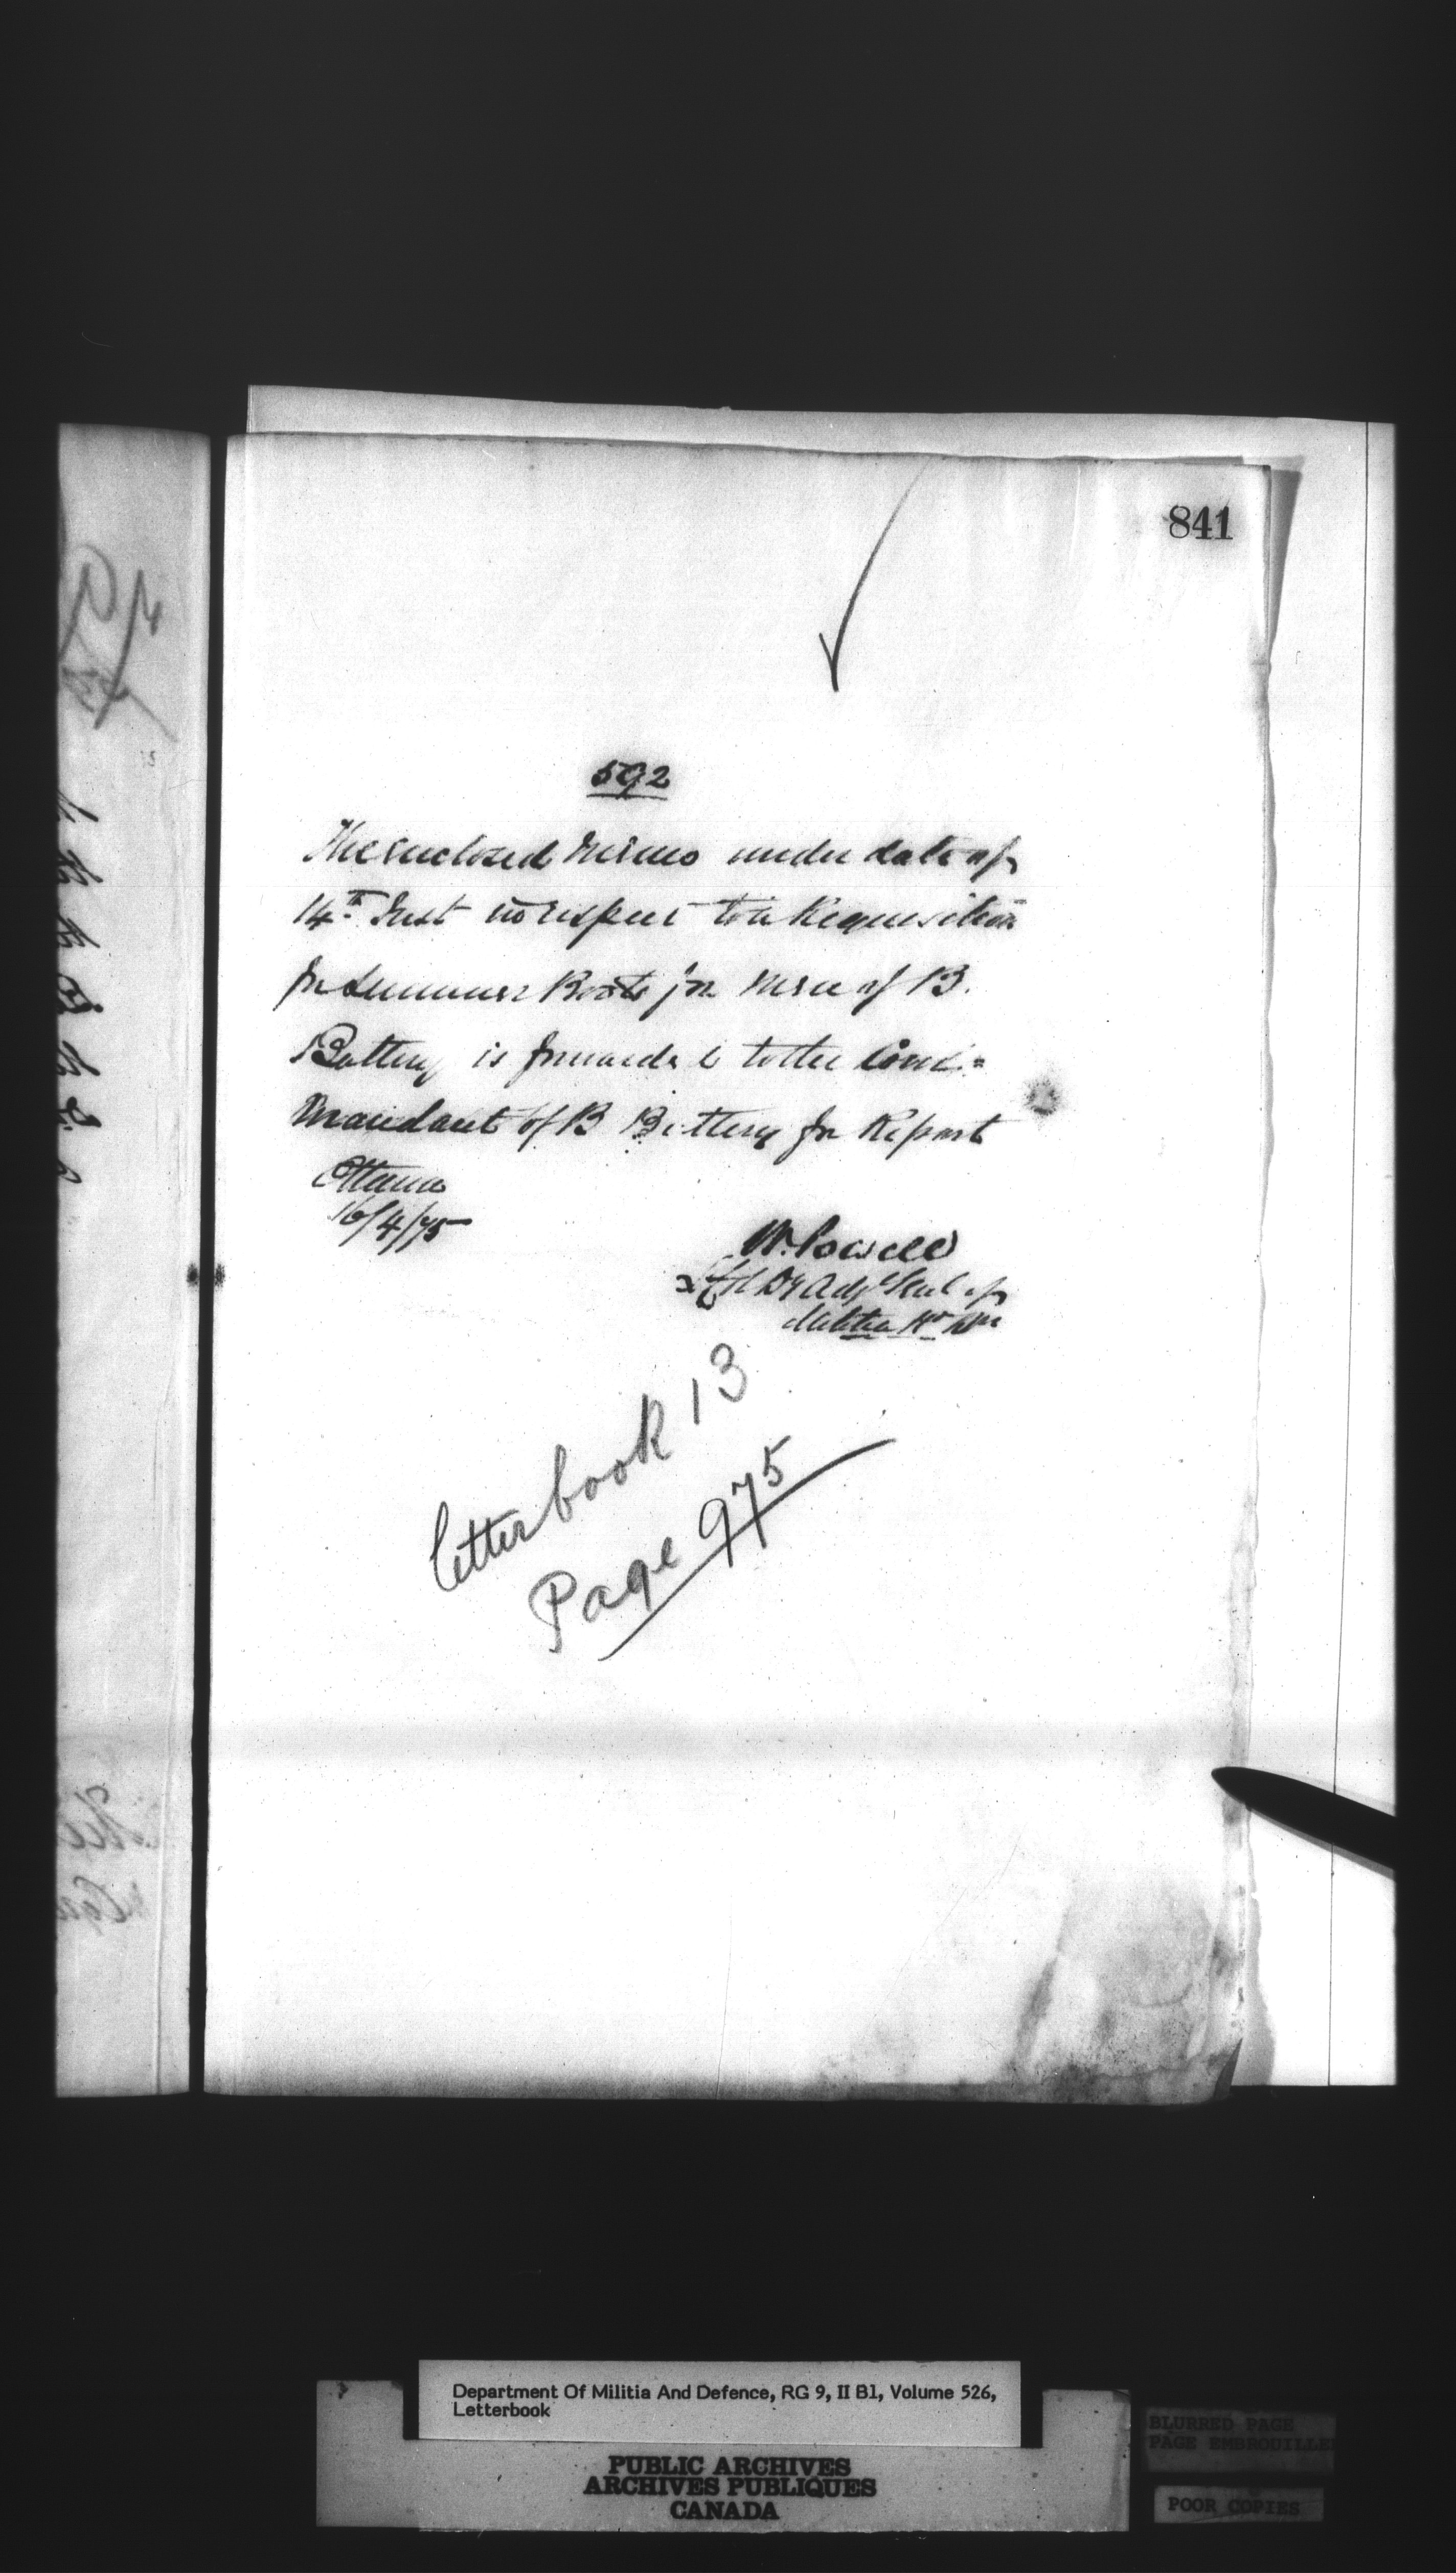 841
592
The enclosed Memo under date of
14th Inst in respect to a Requisition
for Summer Boots for Men of B.
Battery is forwarded to the Com=
mandant of B Battery for Report
Ottawa
16/4/75
W. Powell
Col Dy Adj Genl of
Militia
Letterbook 13
Page 975
Department Of Militia And Defence, RG 9, II B1, Volume 526,
Letterbook
PUBLIC ARCHIVES
ARCHIVES PUBLIQUES
CANADA
BLURRED PAGE
PAGE EMBROUILLEE
POOR COPIES